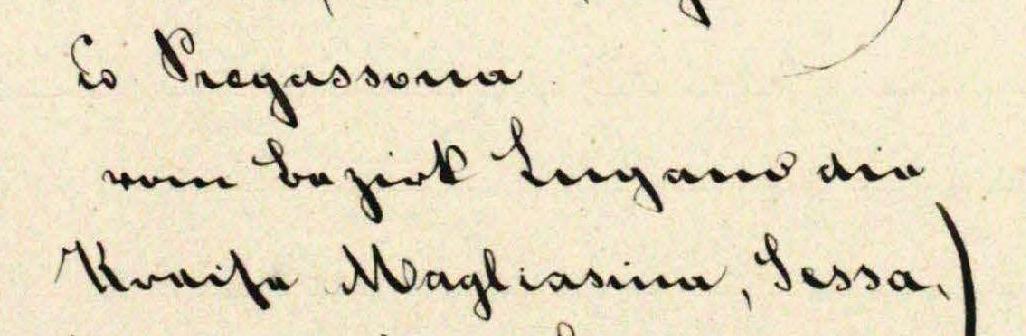 Pregassona
vom Bezirk Lugano die
Kreise Magliasina, Sessa,